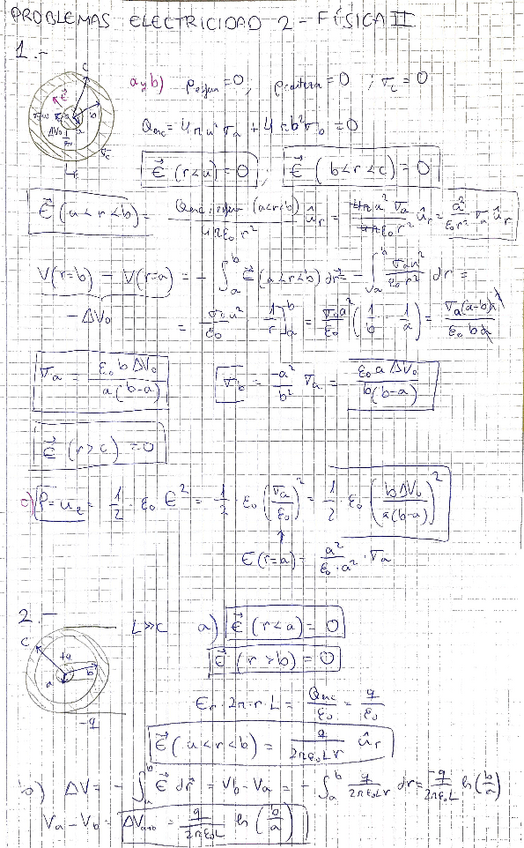 PROBLEMAS ELECTRICIDAD 2 - FÍSICA II
1.-
a y b) ρesfera = 0, ρcorteza = 0 ; σc = 0
Qenc = 4πa²σa + 4πb²σb = 0
E⃗ (r<a) = 0 ; E⃗ (b<r<c) = 0
E⃗ (a<r<b) = Qenc (a<r<b) / 4πε₀r² ûr = 4πa²σa / 4πε₀r² ûr = a² / ε₀r² σa ûr
V(r=b) - V(r=a) = - ∫ₐᵇ E⃗ (a<r<b) dr⃗ = - ∫ₐᵇ σa a² / ε₀r² dr =
-ΔV₀ = σa a² / ε₀ 1/r ]ₐᵇ = σa a² / ε₀ (1/b - 1/a) = σa (a-b) a² / ε₀ b a
σa = ε₀ b ΔV₀ / a(b-a) σb = -a² / b² σa = - ε₀ a ΔV₀ / b(b-a)
E⃗ (r>c) = 0
c) P = ue = 1/2 · ε₀ E² = 1/2 ε₀ (σa / ε₀)² = 1/2 ε₀ (b ΔV₀ / a(b-a))²
E(r=a) = a² / ε₀ · a² · σa
2.-
L>>c a) E⃗ (r<a) = 0
E⃗ (r>b) = 0
Er · 2π · r · L = Qenc / ε₀ = q / ε₀
-q
E⃗ (a<r<b) = q / 2πε₀Lr ûr
b) ΔV = - ∫ₐᵇ E⃗ dr⃗ = Vb - Va = - ∫ₐᵇ q / 2πε₀Lr dr = -q / 2πε₀L ln (b/a)
Va - Vb = ΔV = q / 2πε₀L ln (b/a)